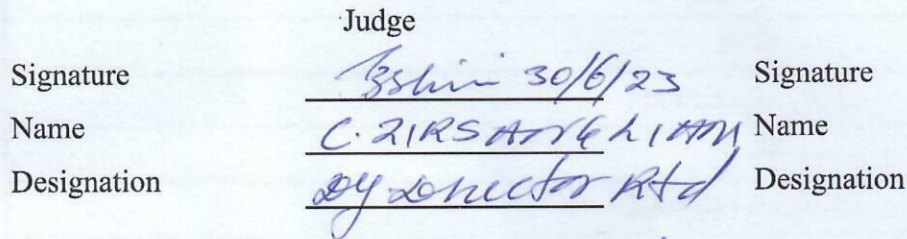 Judge
Signature 30/6/23 Signature
Name C. ZIRSANGLIANA Name
Designation Dy Director Rtd Designation